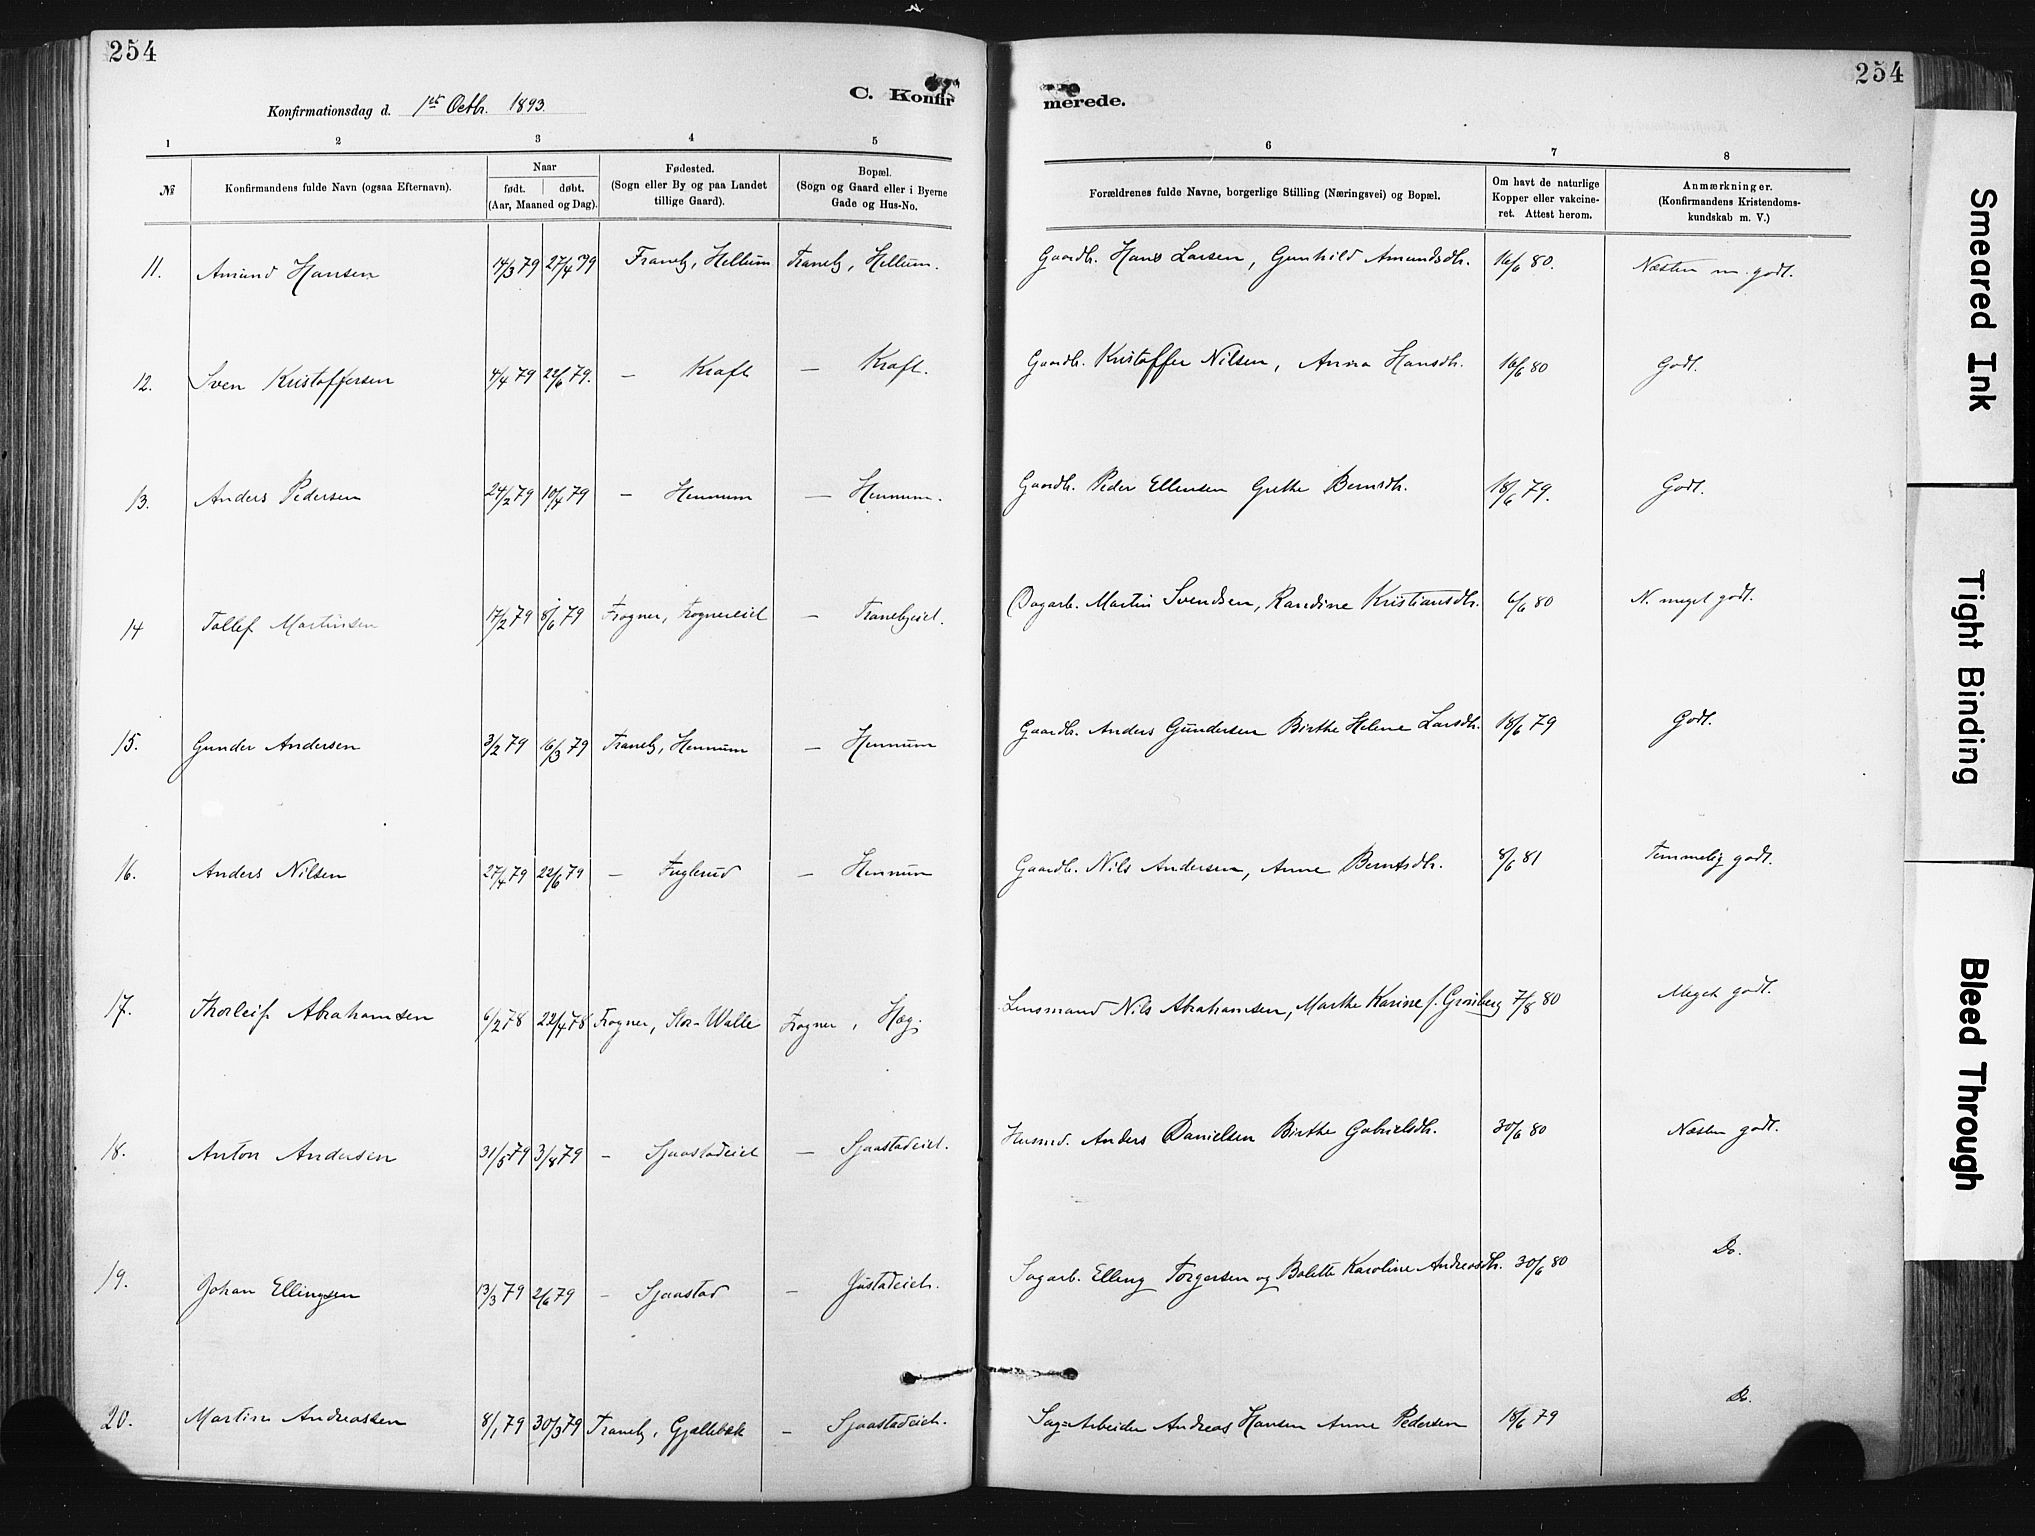 254
254
Konfirmationsdag d. 1ste Octbr. 1893.
C. Konfir
merede.
1 2 3 4 5 6 7 8
№ Konfirmandens fulde Navn (ogsaa Efternavn). Naar født. døbt. (Aar, Maaned og Dag). Fødested. (Sogn eller By og paa Landet tillige Gaard). Bopæl. (Sogn og Gaard eller i Byerne Gade og Hus-No. Forældrenes fulde Navne, borgerlige Stilling (Næringsvei) og Bopæl. Om havt de naturlige Kopper eller vakcineret. Attest herom. Anmærkninger. (Konfirmandens Kristendomskundskab m. V.)
11. Amund Hansen 14/3 79 27/4 79 Traneby, Hellum Traneby, Hellum. Gaardb. Hans Larsen, Gunhild Amundsdtr. 16/6 80. Næsten m. godt.
12. Sven Kristoffersen 4/4 79 22/6 79. — Kraft — Kraft. Gaardb. Kristoffer Nilsen, Anna Hansdtr. 16/6 80 Godt.
13. Anders Pedersen 24/2 79 10/4 79 — Hennum — Hennum. Gaardb. Peder Ellensen Grethe Berntsdtr. 18/6 79. Godt.
14 Tollef Martinsen 17/2 79 8/6 79 Frogner, Frognereiet — Tranebyeiet. Dagarb. Martin Svendsen, Randine Kristiansdtr. 6/6 80 N. meget godt.
15. Gunder Andersen 3/2 79 16/3 79 Traneby, Hennum — Hennum Gaardb. Anders Gundersen Birthe Helene Larsdtr. 18/6 79 Godt.
16. Anders Nilsen 27/4 79 22/6 79 — Fuglerud — Hennum Gaardb. Nils Andersen, Anne Berntsdtr. 8/6 81 Temmelig godt.
17. Thorleif Abrahamsen 6/2 78 22/4 78 Frogner, Stor-Walle Frogner, Hæg. Lensmand Nils Abrahamsen, Marthe Karine f. Grönberg 7/8 80 Meget godt.
18. Anton Andersen 31/5 79 3/8 79 — Sjaastadeiet — Sjaastadeiet. Husmd. Anders Danielsen Birthe Gabrielsdtr. 30/6 80 Næsten godt.
19. Johan Ellingsen 13/3 79 2/6 79 — Sjaastad — Justadeiet. Sagarb. Elling Torgersen og Bolette Karoline Andreasdtr. 30/6 80 Do.
20. Martin Andreassen 8/1 79 30/3 79 Traneby, Gjællebæk — Sjaastadeiet. Sag-Arbeider Andreas Hansen Anne Pedersen 18/6 79 Do.
Smeared Ink
Tight Binding
Bleed Through